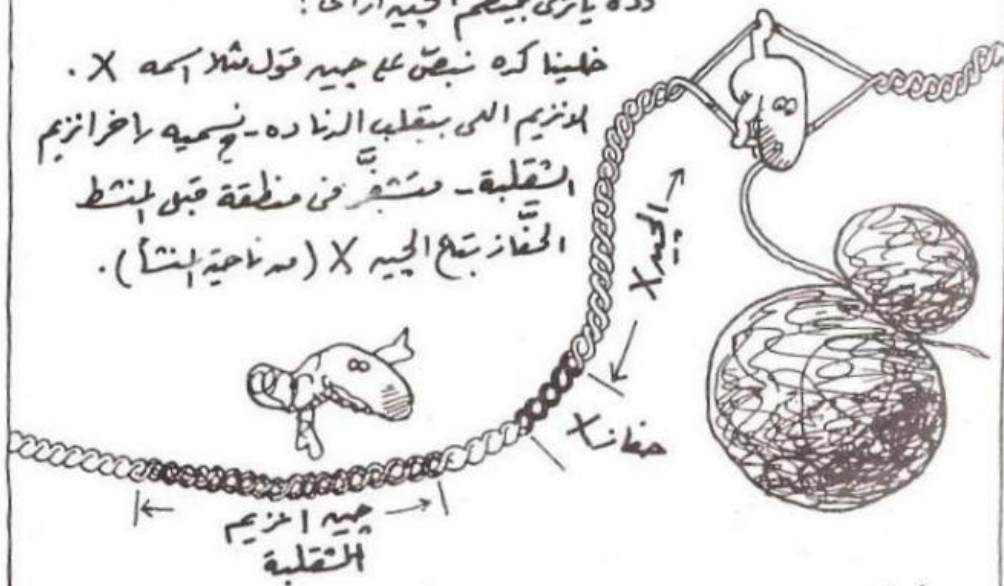 وده يا ترى بينظم الجين ازاى؟
خلينا كده نبص على جين قول مثلا اسمه X .
الانزيم اللى بيقلب الدنا ده - نسميه راخر انزيم
الشقلبة - متشفَّر فى منطقة قبل المنشط
الحفَّاز بتاع الجين X (من ناحية المنشأ).
الجين X
حفاز X
جين انزيم
الشقلبة